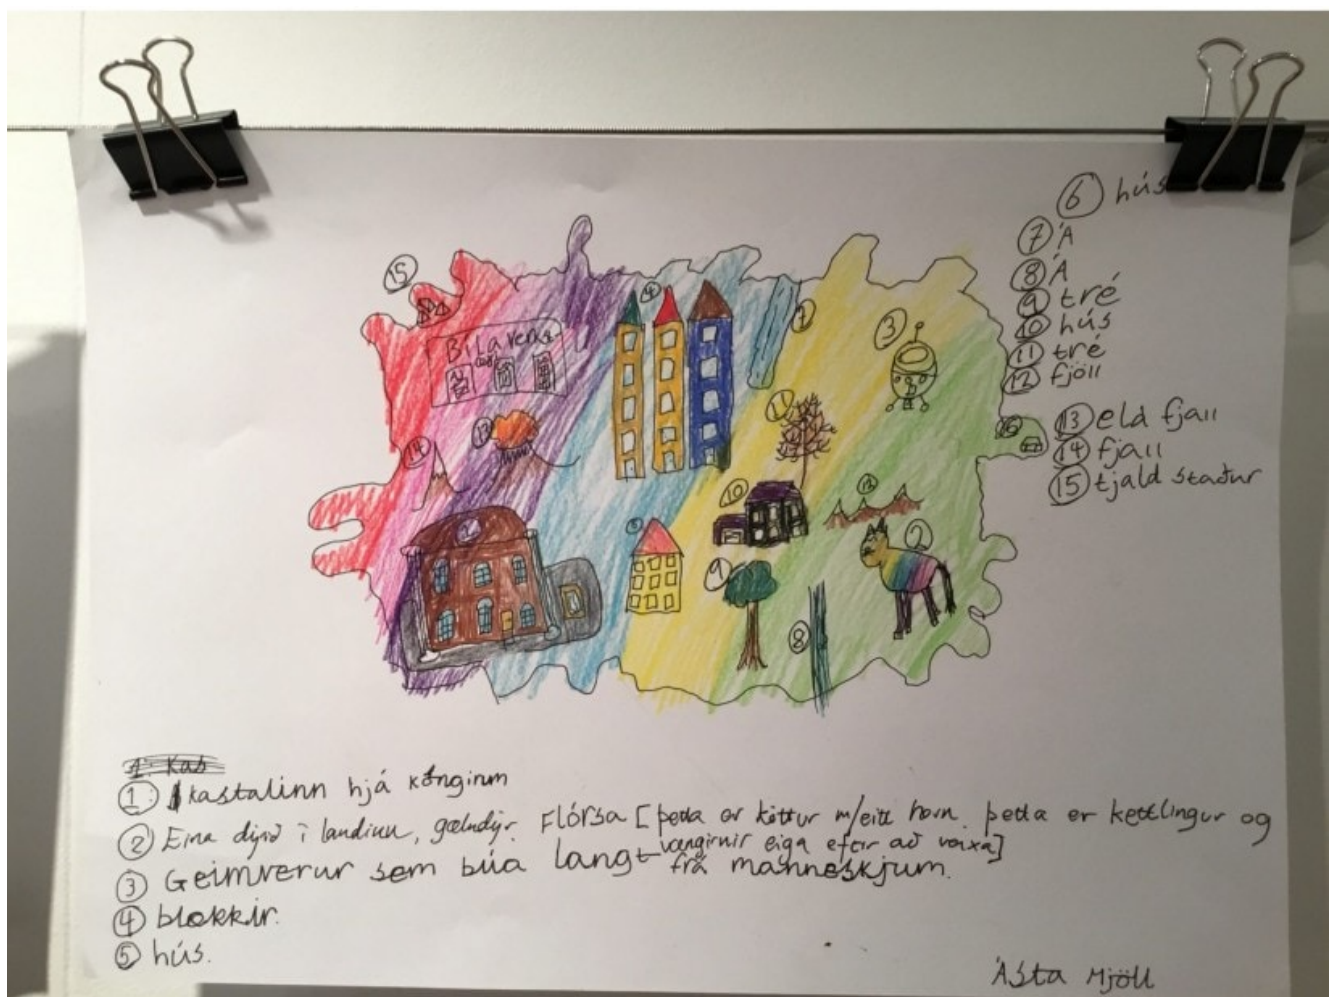 15
4
7
3
Bílaverks-
11
16
13
14
10
12
1
6
2
9
8
6 hús
7 Á
8 Á
9 tré
10 hús
11 tré
12 fjöll
13 eld fjall
14 fjall
15 tjald staður
1. Kas
1: kastalinn hjá kónginum
2 Eina dýrið í landinu, gæludýr. Flórsa [þetta er köttur m/eitt horn. þetta er kettlingur og
vængirnir eiga eftir að vaxa]
3 Geimverur sem búa langt frá manneskjum.
4 blokkir.
5 hús.
Ásta Mjöll